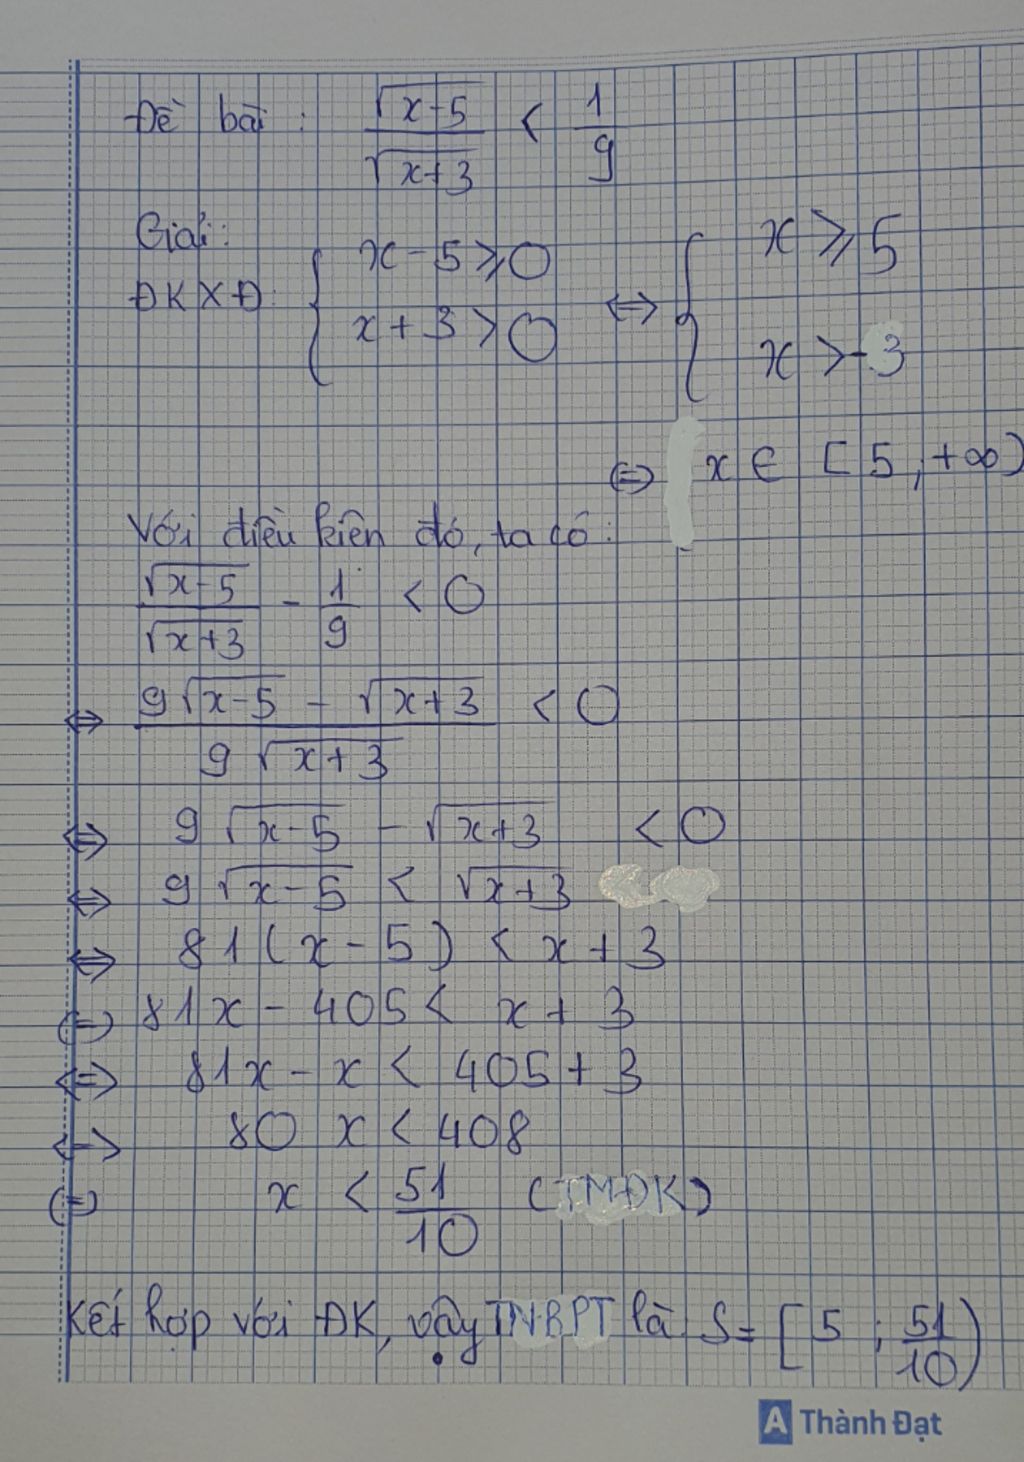 Đề bài : √(x-5) / √(x+3) < 1/9
Giải:
ĐKXĐ: { x - 5 ⩾ 0 ; x + 3 > 0 ⇔ { x ⩾ 5 ; x > -3
⇔ x ∈ [5, +∞)
Với điều kiện đó, ta có:
√(x-5) / √(x+3) - 1/9 < 0
⇔ (9√(x-5) - √(x+3)) / (9√(x+3)) < 0
⇔ 9√(x-5) - √(x+3) < 0
⇔ 9√(x-5) < √(x+3)
⇔ 81(x-5) < x+3
⇔ 81x - 405 < x + 3
⇔ 81x - x < 405 + 3
⇔ 80x < 408
⇔ x < 51/10 (TMĐK)
Kết hợp với ĐK, vậy TNBPT là S = [5 ; 51/10)
A Thành Đạt